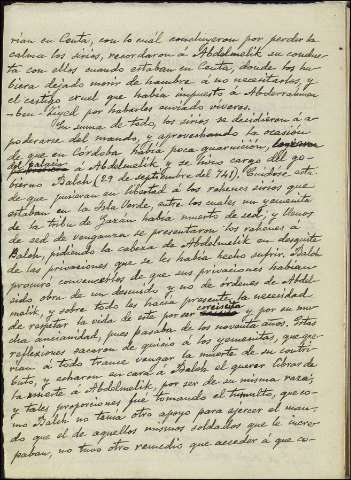 rian en Ceuta, con lo cuál concluyeron por perder la
calma los sirios, recordaron á Abdelmelik su conduc-
ta con ellos cuando estaban en Ceuta, donde los hu-
biera dejado morir de hambre á no necesitarlos, y
el castigo cruel que habia impuesto á Abderrahman
-ben-Ziyed por haberles enviado viveres.
En suma de todo, los sirios se decidieron á a-
poderarse del mando, y aprovechando la ocasion
de que en Córdoba habia poca guarnición,
á Abdelmelik y se hizo cargo del go-
bierno Balch (29 de septiembre del 741). Cuidóse este
de que pusieran en libertad á los rehenes sirios que
estaban en la Isla Verde, entre los cuales un yemenita
de la tribu de Gazan habia muerto de sed; y llenos
de sed de venganza se presentaron los rehenes á
Balch, pidiendo la cabeza de Abdelmelik en desquite
de las privaciones que se les habia hecho sufrir. Balch
procuró convencerlos de que sus privaciones habian
sido obra de un descuido y no de órdenes de Abdel-
melik, y sobre todo les hacia presente la necesidad
de respetar la vida de este por ser coreixita y por su mu-
cha ancianidad, pues pasaba de los noventa años. Estas
reflexiones sacaron de quicio á los yemenitas, que que-
rian á todo trance vengar la muerte de su contri-
buto, y echaron en cara á Balch el querer librar de
la muerte á Abdelmelik, por ser de su misma raza;
y tales proporciones fue tomando el tumulto, que co-
mo Balch no tenia otro apoyo para ejercer el man-
do que el de aquellos mismos soldados que le incre-
paban, no tuvo otro remedio que acceder á que co-